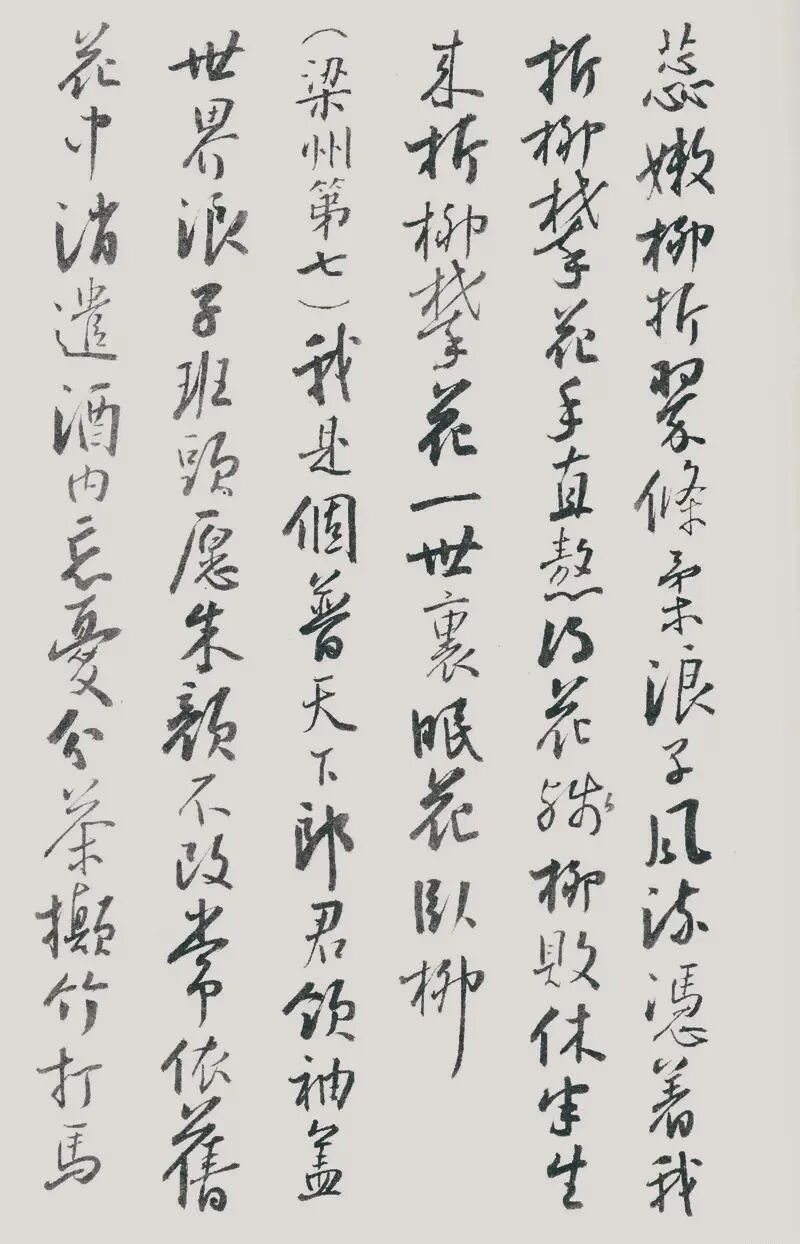 蕊嫩柳折翠條柔浪子風流憑着我
折柳攀花手直熬得花殘柳敗休半生
来折柳攀花一世裏眠花臥柳
（梁州第七）我是個普天下郎君領袖盖
世界浪子班頭愿朱顏不改常依舊
花中消遣酒内忘憂分茶攧竹打馬